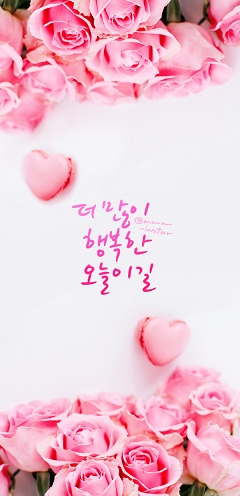 더 많이
행복한
오늘이길